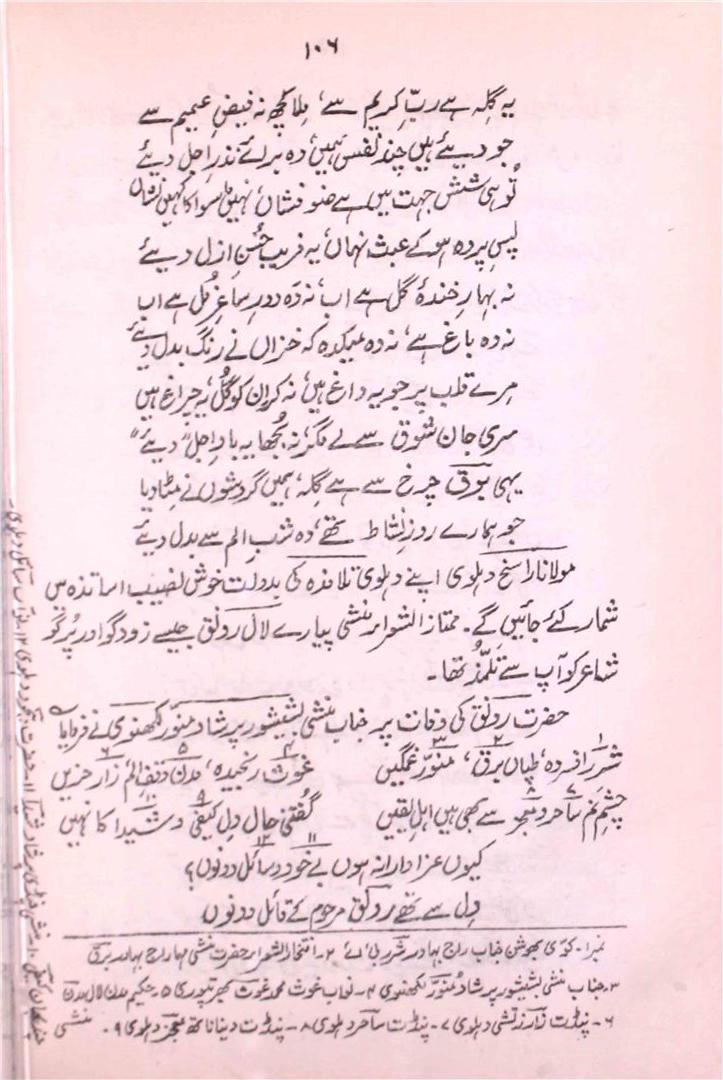 ۱۰۶
یہ گِلہ ہے ربِّ کریم سے، مِلا کچھ نہ فیضِ عمیم سے
جو دیئے ہیں چند نفس ہمیں، وہ برائے نذرِ اجل دیئے
تُو ہی شش جہت میں ہے ضو فشاں، نہیں سوا کا کہیں نشاں
پسِ پردہ ہو کے عبث نہاں، یہ فریبِ حُسنِ ازل دیئے
نہ بہارِ خندۂ گل ہے اب، نہ وہ دورِ ساغرِ مُل ہے اب
نہ وہ باغ ہے، نہ وہ میکدہ کہ خزاں نے رنگ بدل دیئے
مرے قلب پر جو یہ داغ ہیں، نہ کر ان کو گُل یہ چراغ ہیں
مری جان شوق سے لے مگر، نہ بُجھا یہ بادِ اجل "دیئے"
یہی برق چرخ سے ہے گِلہ، ہمیں گردشوں نے مِٹا دیا
جو ہمارے روزِ نشاط تھے، وہ شبِ الم سے بدل دیئے
مولانا راسخ دہلوی اپنے دہلوی تلامذہ کی بدولت خوش نصیب اساتذہ میں
شمار کئے جائیں گے۔ ممتاز الشعراء منشی پیارے لال رونق جیسے زودگو اور پُرگو
شاعر کو آپ سے تلمّذ تھا۔
حضرت رونق کی وفات پر جناب منشی بشیشور پرشاد منوّر لکھنوی نے فرمایا
شررؔ افسردہ، طپاں برقؔ، منوّرؔ غمگیں غوثؔ رنجیدہ، مدنؔ وقفِ الم زارؔ حزیں
چشمِ نم ساحرؔ و معجزؔ سے بھی ہیں اہلِ یقیں گفتنی حالِ دلِ کیفیؔ و شیداؔ کا نہیں
کیوں عزادار نہ ہوں بے خودؔ و سائلؔ دونوں؟
دل سے تھے رونقؔ مرحوم کے قائل دونوں
نمبر۱۔ کوی بھوشن جناب راج بہادر شررؔ بی اے ۲۔ افتخار الشعراء حضرت منشی مہاراج بہادر برقؔ
۳۔ جناب منشی بشیشور پرشاد منوّرؔ لکھنوی ۴۔ نواب غوث محمد غوثؔ بھرتپوری ۵۔ حکیم مدن لال مدنؔ
۶۔ پنڈت زارؔ زتشی دہلوی ۷۔ پنڈت ساحرؔ دہلوی ۸۔ پنڈت دینا ناتھ معجزؔ دہلوی ۹۔ منشی
چندر بھان کیفیؔ ۱۰۔ منشی چنڈی پرشاد شیداؔ ۱۱۔ حضرت بیخودؔ دہلوی ۱۲۔ نواب سائلؔ دہلوی۔